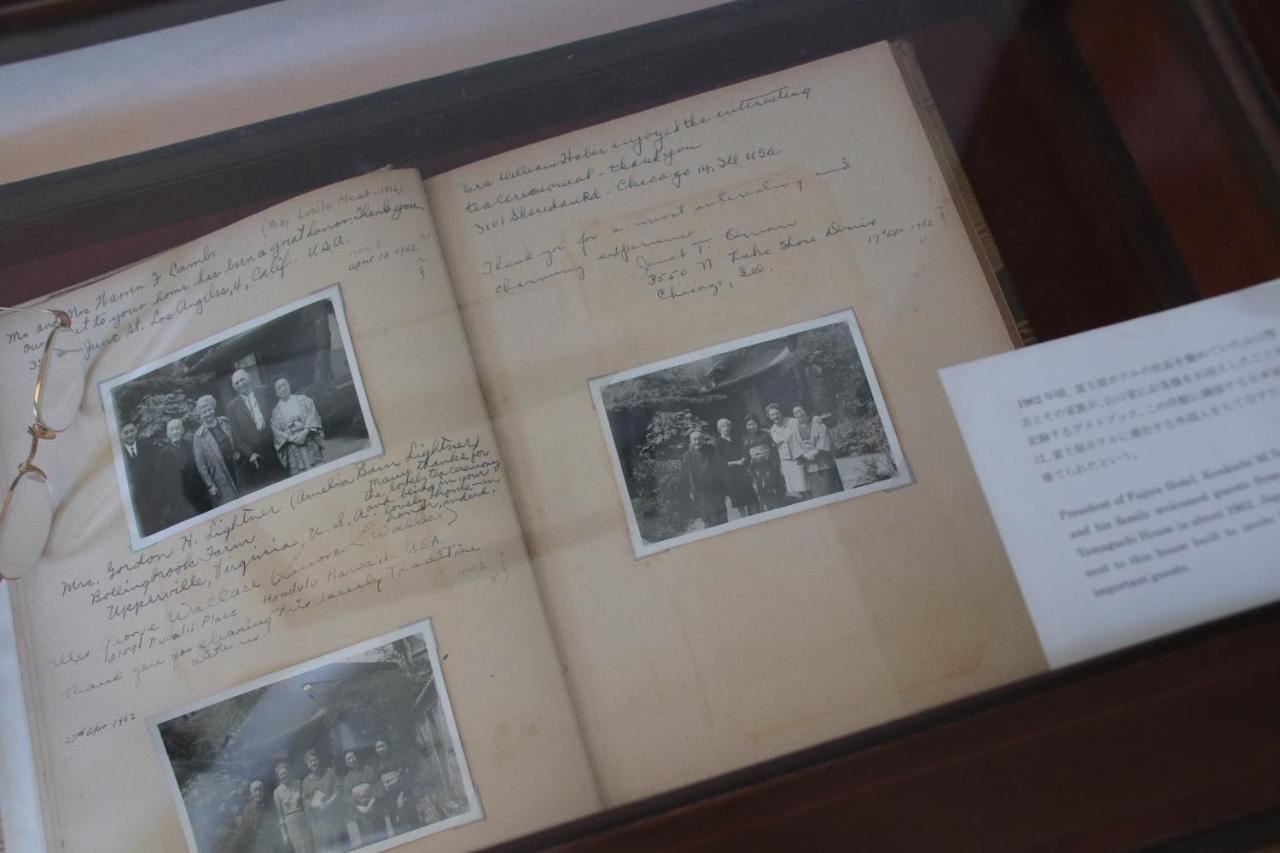 (Ruby Lucile Mead - 1916)
Mr and Mrs Warren J Lamb
our visit to your home has been a great honor. Thank you.
June St. Los Angeles, 4, Calif. U.S.A.
april 16 1962
Mrs. Gordon H. Lightner (Amelia Bain Lightner)
Bollingbrook Farm
Upperville, Virginia, U.S.A.
Many thanks for
the lovely tea ceremony
and being in your
lovely home - an
honor, indeed.
Mrs George Wallace (Wallace)
Place Honolulu Hawaii - U.S.A.
Thank you for sharing this lovely tradition
with us.
27th Apr. 1962
Mrs William Haber enjoyed the interesting
tea ceremonial - thank you
3101 Sheridan Rd - Chicago 14, Ill USA.
Thank you for a most interesting and
charming experience.
Janet T.
3550 N Lake Shore Drive
Chicago, Ill.
17th Apr. 1962
1962年頃、富士屋ホテルの社長を勤めていた山口
おとその家族が、山口家にお客様をお迎えしたことを
記録するゲストブック。この洋館に隣接する日本家
は、富士屋ホテルに滞在する外国人をもてなすた
建てられたという。
President of Fujiya Hotel, Kenkichi M. Ya
and his family welcomed guests from
Yamaguchi House in about 1962. Jap
next to this house built to invite
important guests.